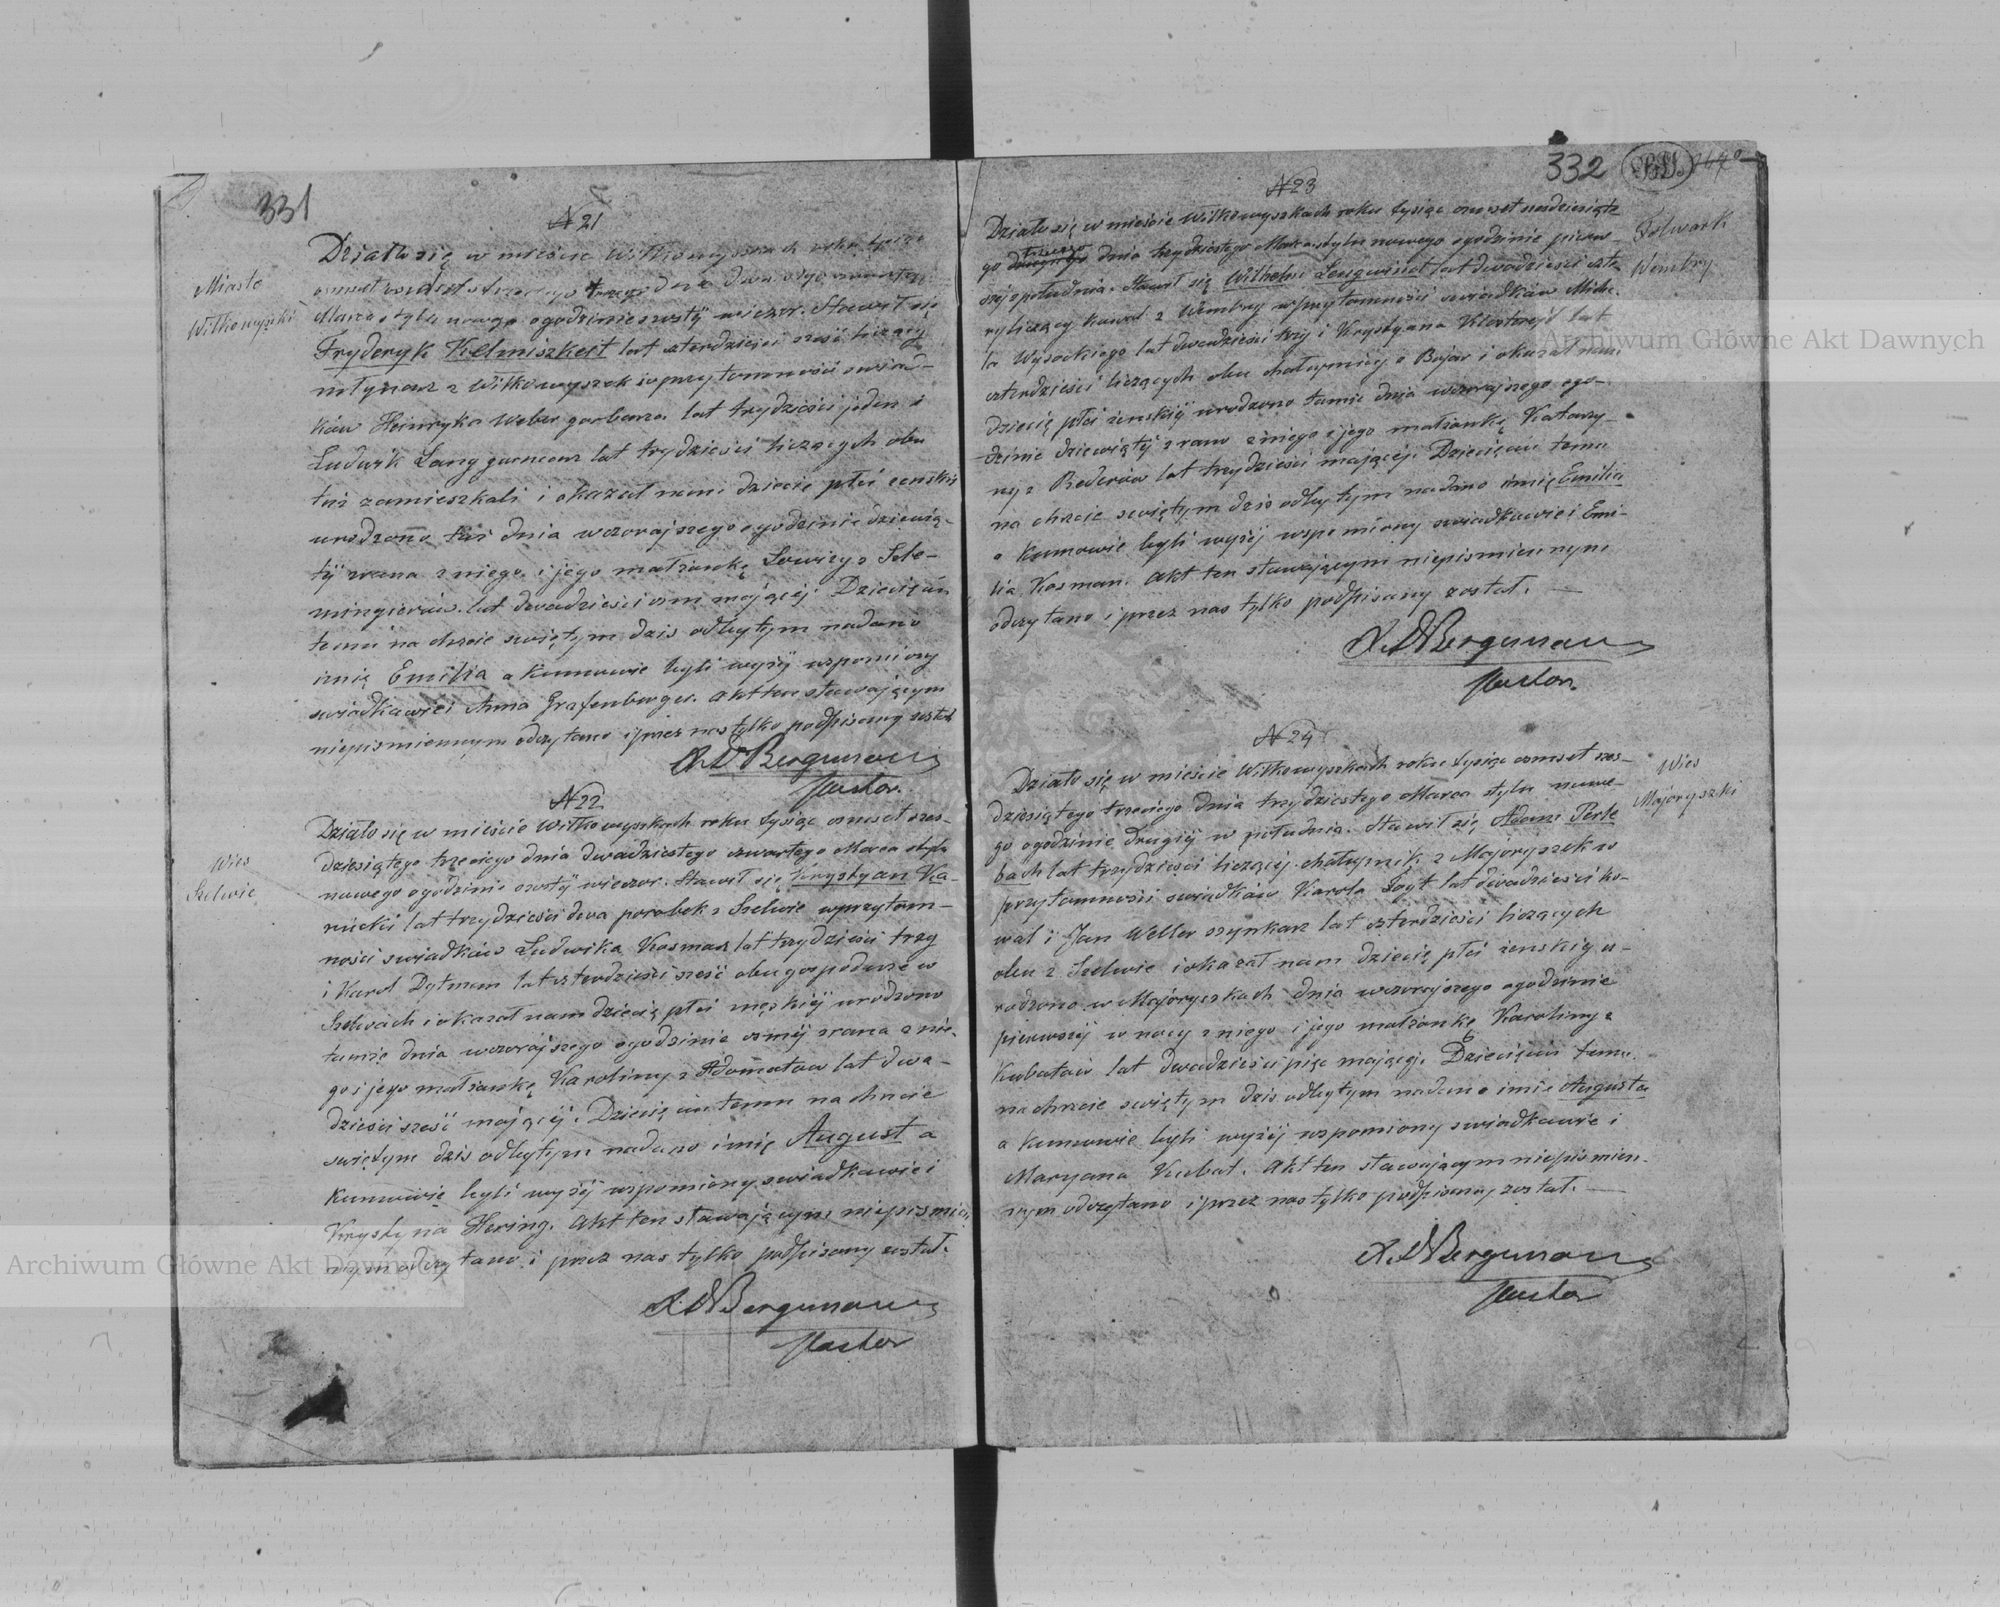 331
N 21
Miasto
Wiłkowyszki
Działo się w mieście Wiłkowyszkach roku tysiąc
osmset trzeciego dnia
Marca stylu nowego o godzinie szosty wieczor. Stawił się
Fryderyk Kelmiszkeit lat czterdzieści sześć liczący
młynarz z Wiłkowyszek w przytomności świad-
ków Heinryka Weber garbarza lat trydzieści jeden i
Ludwik Lang garncarz lat trydzieści liczących obu
tu zamieszkali i okazał nam dziecie płci zenski
urodzono tu dnia wczorajszego o godzinie dziewią-
ty zrana z niego i jego małżonkę Lowizy z Szle-
mingierów lat dwadzieścia osm mającéj. Dziecięciu
temu na chrzcie świętym dzis odbytym nadano
imię Emilia a kumowie byli wyżéj wspomiony
świadkowie i Anna Grafenberger. Akt ten stawającym
niepismiennym odczytano i przez nas tylko podpisany został
Bergmann
Pastor.
N 22
Wies
Szelwie
Działo się w mieście Wiłkowyszkach roku tysiąc osmset szes-
dziesiątego trzeciego dnia dwadziestego czwartego Marca stylu
nowego o godzinie szosty wieczor. Stawił się Krystyan Ka-
rucki lat trzydzieści dwa parobek z Szelwie w przytom-
ności świadków Ludwika Kosman lat trzydzieści trzy
i Karol Dytman lat czterdzieści sześć obu gospodarze w
Szelwach i okazał nam dziecię płci męskiéj urodzono
tamże dnia wczorajszego o godzinie osméj zrana z nie-
go i jego małżonkę Karoliny z Adomatow lat dwa-
dzieści sześć mającéj. Dziecięciu temu na chrzcie
świętym dzis odbytym nadano imię August a
kumowie byli wyżéj wspomiony świadkowie i
Krystyna Hering. Akt ten stawającym niepismien-
nym odczytano i przez nas tylko podpisany został.
Bergmann
Pastor
332
N 23
Folwark
Wembry
Działo się w mieście Wiłkowyszkach roku tysiąc osmset szesdziesiąte
go trzeciego dnia trzydziestego Marca stylu nowego o godzinie pierw-
széj z południa. Stawił się Wilhelm Lengwinat lat dwadzieści czte-
ry liczący kowal z Wembry w przytomności świadków Micha-
ła Wysockiego lat dwadzieści trzy i Krystyana Klosterejt lat
czterdzieści liczących obu chałupnicy z Bojar i okazał nam
dziecię płci żeńskiéj urodzono tamże dnia wczorajszego ogo-
dzinie dziewiątéj z rana z niego i jego małżonkę Katarzy-
ny z Roderów lat trzydzieści mającéj. Dziecięciu temu
na chrzcie świętym dzis odbytym nadano imię Emilia
a kumowie byli wyżéj wspomiony świadkowie i Emi-
lia Kosman. Akt ten stawającymi niepismiennym
odczytano i przez nas tylko podpisany został.
Bergmann
Pastor.
N 24
Wies
Majoryszki
Działo się w mieście Wiłkowyszkach roku tysiąc osmset szes-
dziesiątego trzeciego dnia trzydziestego Marca stylu nowe-
go ogodzinie drugiéj w południa. Stawił się Adam Perle
bach lat trzydzieści liczącéj chałupnik z Majoryszek w
przytomności świadków Karola Fogt lat dwadzieści ko-
wal i Jan Weller szynkarz lat czterdzieści liczących
obu z Szelwie i okazał nam dziecię płci żenskiy u-
rodzono w Majoryszkach dnia wczorajszego ogodzinie
pierwszéj w nocy z niego i jego małżonkę Karoliny z
Kubatów lat dwadzieści pięć mającéj. Dziecięciu temu
na chrzcie świętym dzis odbytym nadano imie Augusta
a kumowie byli wyżéj wspomiony świadkowie i
Maryana Kubat. Akt ten stawającym niepismien-
nym odczytano i przez nas tylko podpisany został.
Bergmann
Pastor
Archiwum Główne Akt Dawnych
Archiwum Główne Akt Dawnych